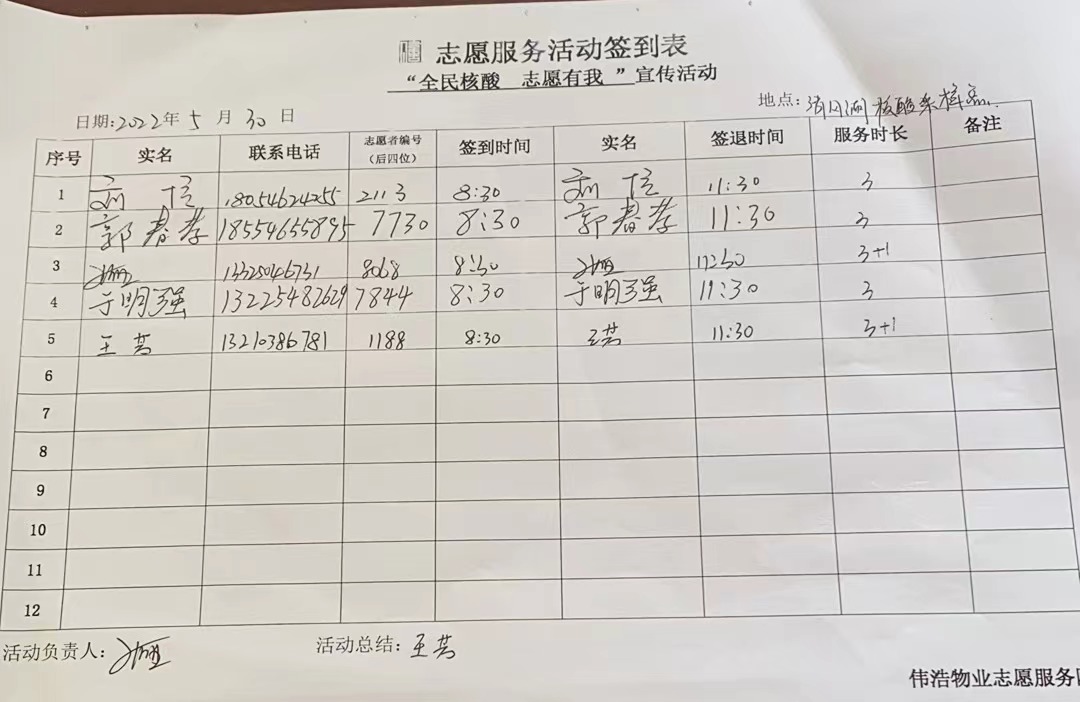 志愿服务活动签到表
“全民核酸 志愿有我 ”宣传活动
日期:2022年 5 月 30 日 地点: 核酸采样点
序号 实名 联系电话 志愿者编号（后四位） 签到时间 实名 签退时间 服务时长 备注
1 刘 18054624255 2113 8:30 刘 11:30 3
2 郭春孝 18554655895 7730 8:30 郭春孝 11:30 3
3 13325046731 8068 8:30 11:30 3+1
4 于明强 13225482629 7844 8:30 于明强 11:30 3
5 王芸 13210386781 1188 8:30 王芸 11:30 3+1
6
7
8
9
10
11
12
活动负责人: 活动总结: 王芸
伟浩物业志愿服务